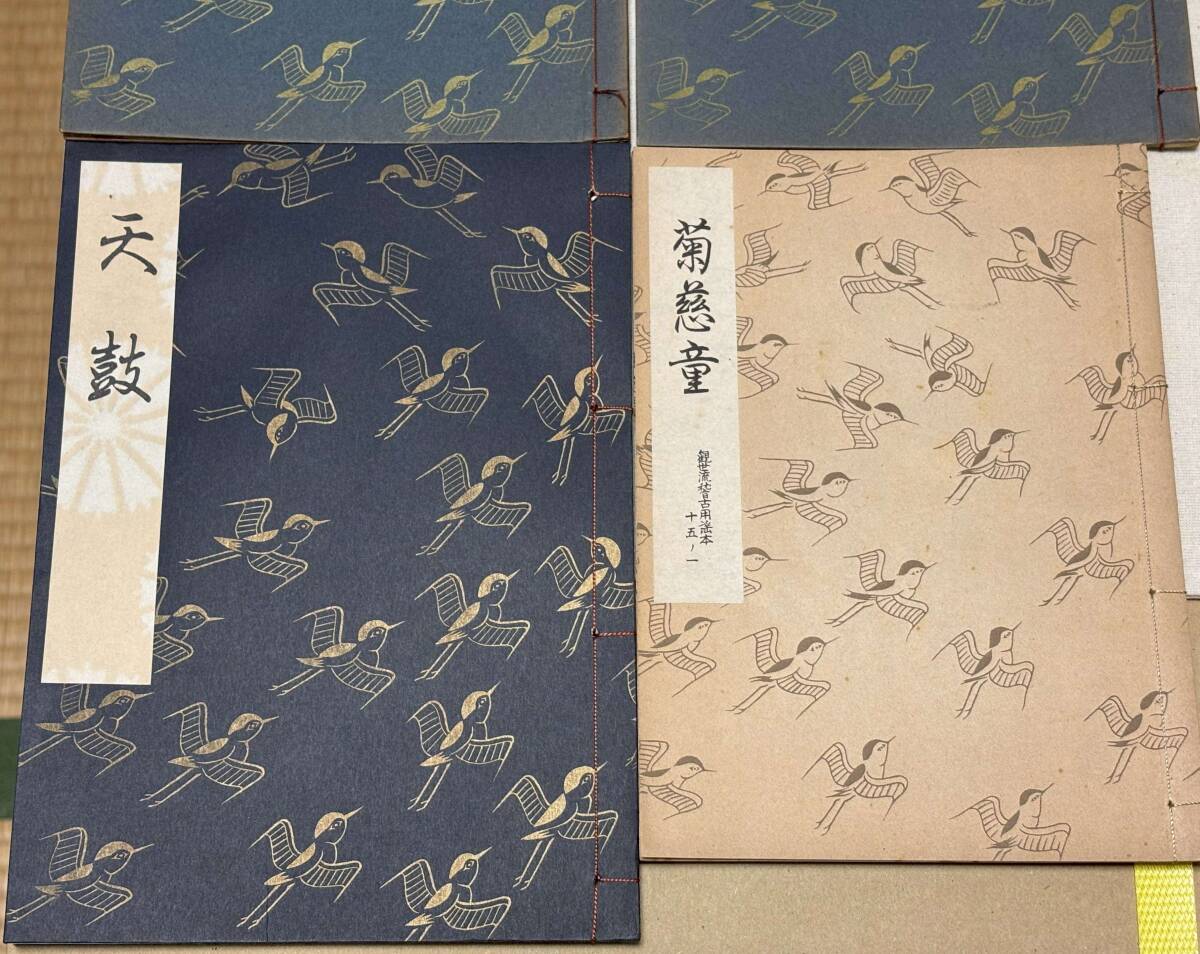 天鼓
菊慈童
観世流稽古用謡本
十五ノ一